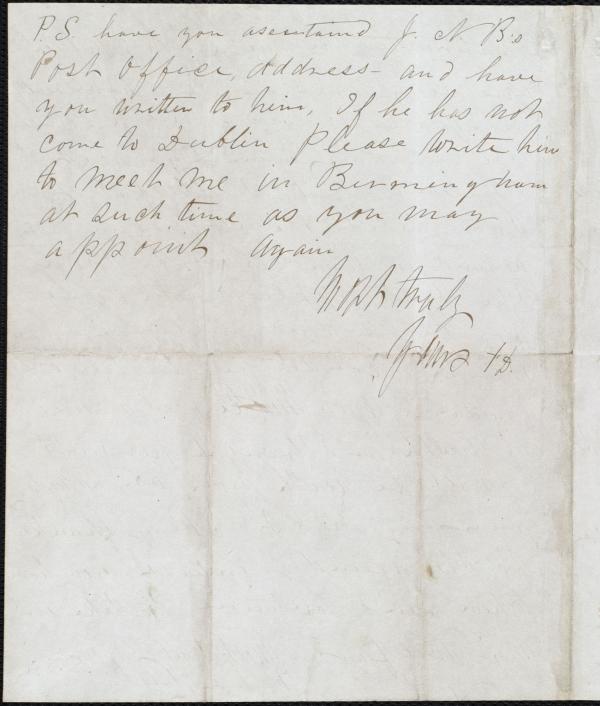 P.S. have you asertaind J. N. B:s
Post Office, Address – and have
you written to him, If he has not
come to Dublin Please write him
to meet me in Birmingham
at such time as you may
appoint Again
Most truly
Yours F D.